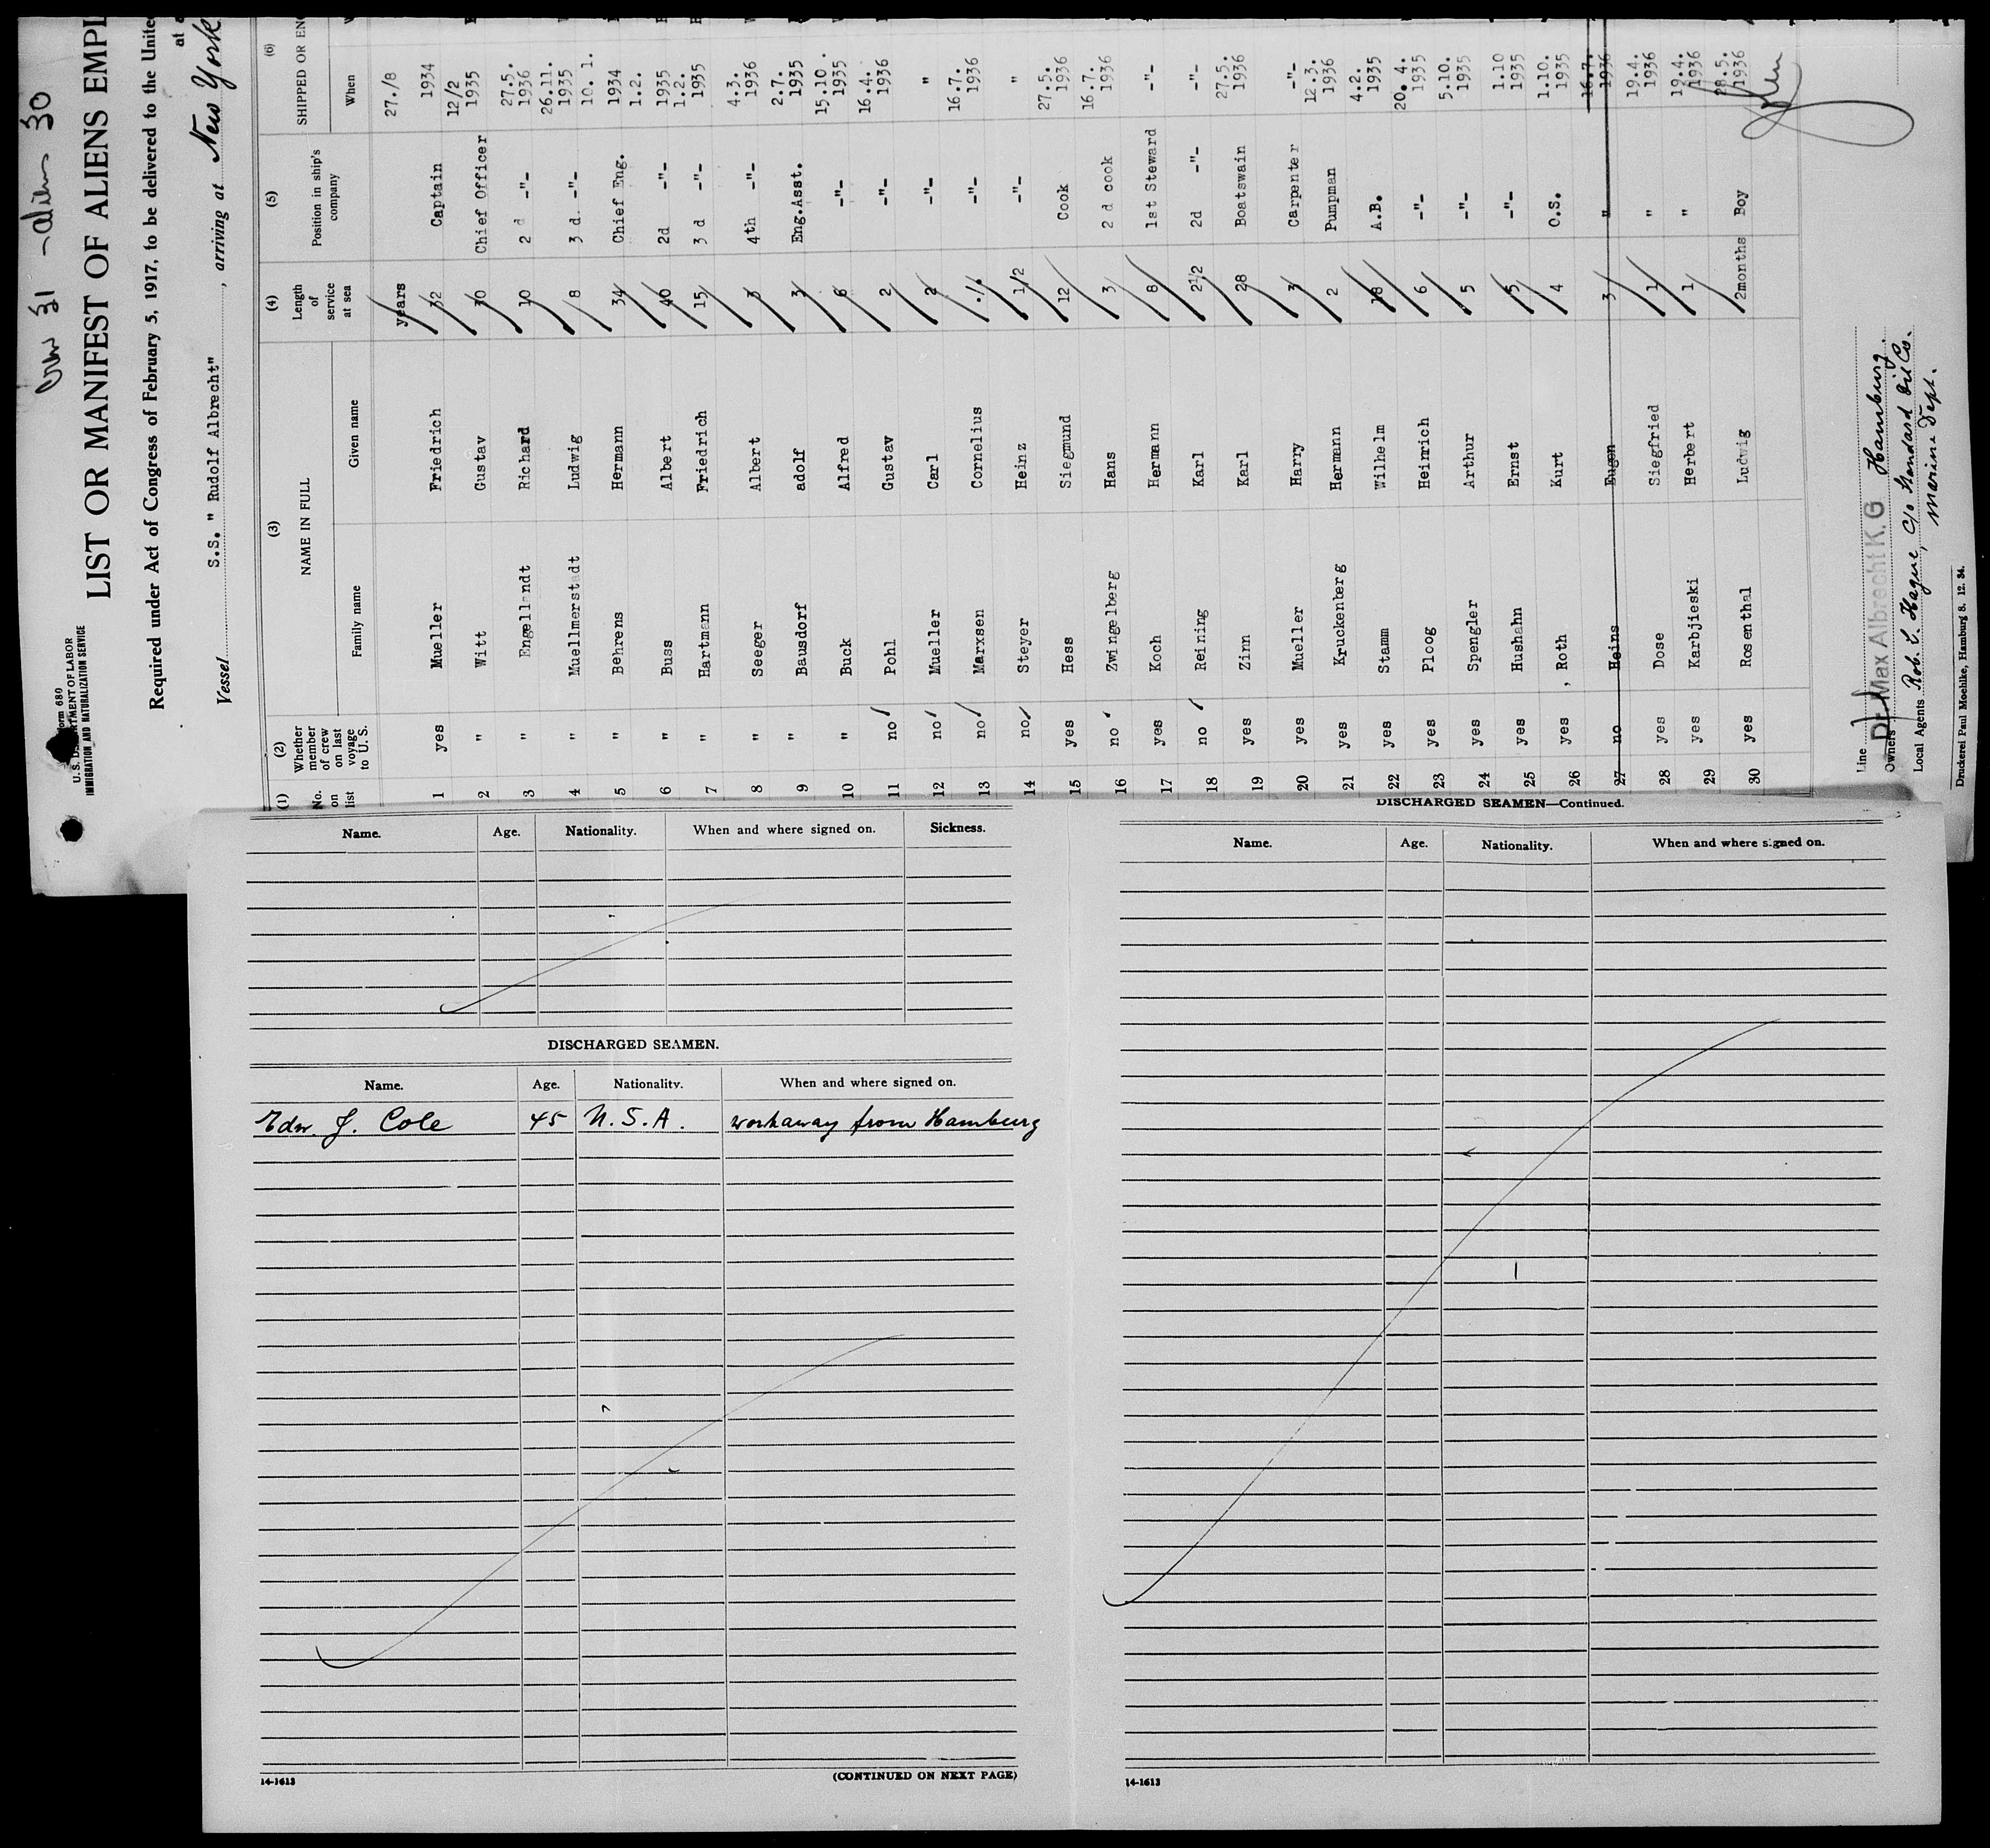 Crew 31 - alien 30
Form 680
U. S. DEPARTMENT OF LABOR
IMMIGRATION AND NATURALIZATION SERVICE
LIST OR MANIFEST OF ALIENS EMPL
Required under Act of Congress of February 5, 1917, to be delivered to the Unite
at
Vessel S.S. " Rudolf Albrecht" , arriving at New York
(1) No. on list (2) Whether member of crew on last voyage to U. S. (3) NAME IN FULL Family name Given name (4) Length of service at sea (5) Position in ship's company (6) SHIPPED OR ENG When
years
1 yes Mueller Friedrich 32 Captain 27./8 1934
2 " Witt Gustav 30 Chief Officer 12/2 1935
3 " Engellandt Richard 10 2 d -"- 27.5. 1936
4 " Muellmerstadt Ludwig 8 3 d. -"- 26.11. 1935
5 " Behrens Hermann 34 Chief Eng. 10. 1. 1934
6 " Buss Albert 40 2d -"- 1.2. 1935
7 " Hartmann Friedrich 15 3 d -"- 1.2. 1935
8 " Seeger Albert 3 4th -"- 4.3. 1936
9 " Bausdorf adolf 3 Eng.Asst. 2.7. 1935
10 " Buck Alfred 6 -"- 15.10. 1935
11 no Pohl Gustav 2 -"- 16.4. 1936
12 no Mueller Carl 2 -"- "
13 no Marxsen Cornelius ./. -"- 16.7. 1936
14 no Steyer Heinz 1/2 -"- "
15 yes Hess Siegmund 12 Cook 27.5. 1936
16 no Zwingelberg Hans 3 2 d cook 16.7. 1936
17 yes Koch Hermann 8 1st Steward -"-
18 no Reining Karl 2 1/2 2d -"- -"-
19 yes Zinn Karl 28 Boatswain 27.5. 1936
20 yes Mueller Harry 3 Carpenter -"-
21 yes Kruckenberg Hermann 2 Pumpman 12.3. 1936
22 yes Stamm Wilhelm 18 A.B. 4.2. 1935
23 yes Ploog Heinrich 6 -"- 20.4. 1935
24 yes Spengler Arthur 5 -"- 5.10. 1935
25 yes Hushahn Ernst 5 -"- 1.10 1935
26 yes , Roth Kurt 4 O.S. 1.10. 1935
27 no Heins Eugen 3 " 16.7. 1936
28 yes Dose Siegfried 1 " 19.4. 1936
29 yes Karbjieski Herbert 1 " 19.4. 1936
30 yes Rosenthal Ludwig 2months Boy 28.5. 1936
Line
Owners Dr. Max Albrecht K.G Hamburg.
Local Agents Rob. L. Hague, c/o Standard Oil Co.
Marine Dept.
Druckerei Paul Moehlke, Hamburg 8. 12. 34.
Name. Age. Nationality. When and where signed on. Sickness.
DISCHARGED SEAMEN.
Name. Age. Nationality. When and where signed on.
Edw. J. Cole 45 U.S.A. workaway from Hamburg
14-1613 (CONTINUED ON NEXT PAGE)
DISCHARGED SEAMEN—Continued.
Name. Age. Nationality. When and where signed on.
14-1613